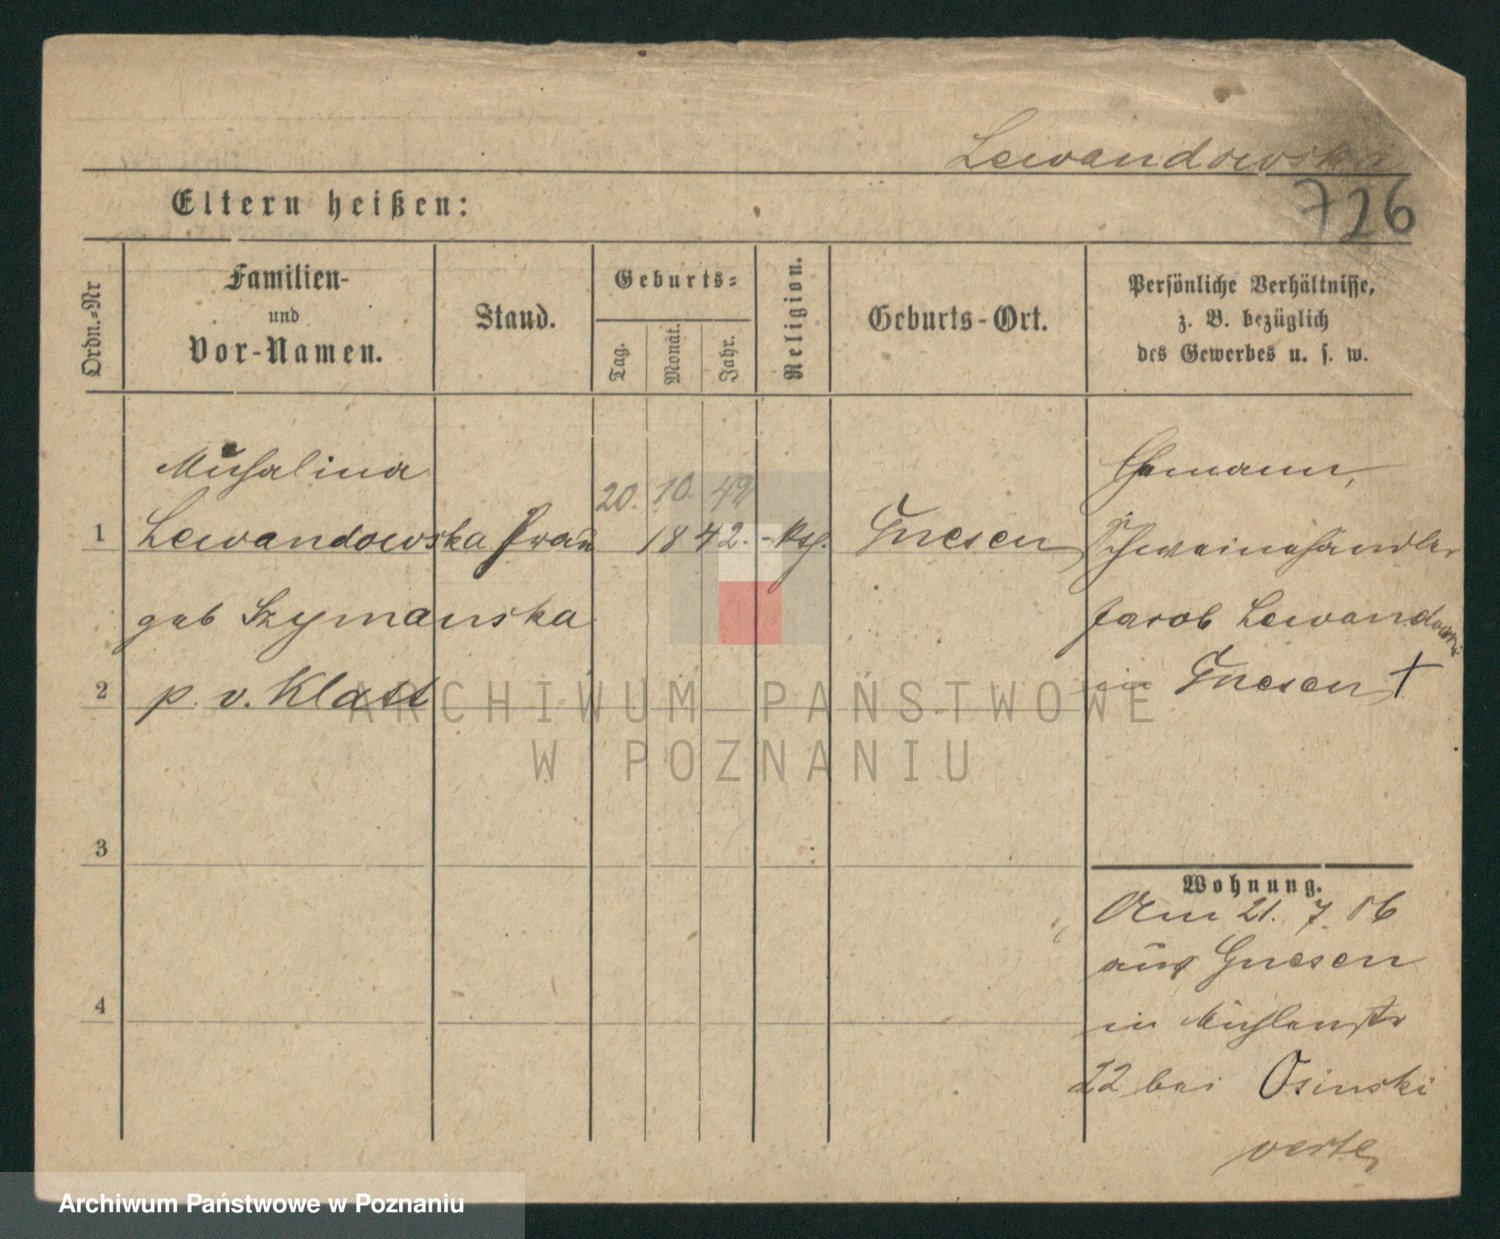 Lewandowska
726
Eltern heißen:
Ordn.-Nr
Familien-
und
Vor-Namen.
Stand.
Geburts-
Tag.
Monat.
Jahr.
Religion.
Geburts-Ort.
Persönliche Verhältnisse,
z. B. bezüglich
des Gewerbes u. s. w.
Michalina
20. 10. 42
1 Lewandowska Frau 1842. Gnesen
geb Szymanska
2 p. v. Klatt
3
4
Ehemann,
Schweinehändler
Jacob Lewandowski
in Gnesen †
Wohnung.
Am 21. 7. 06
aus Gnesen
in Mühlenstr
22 bei Osinski
verte
ARCHIWUM PAŃSTWOWE
W POZNANIU
Archiwum Państwowe w Poznaniu